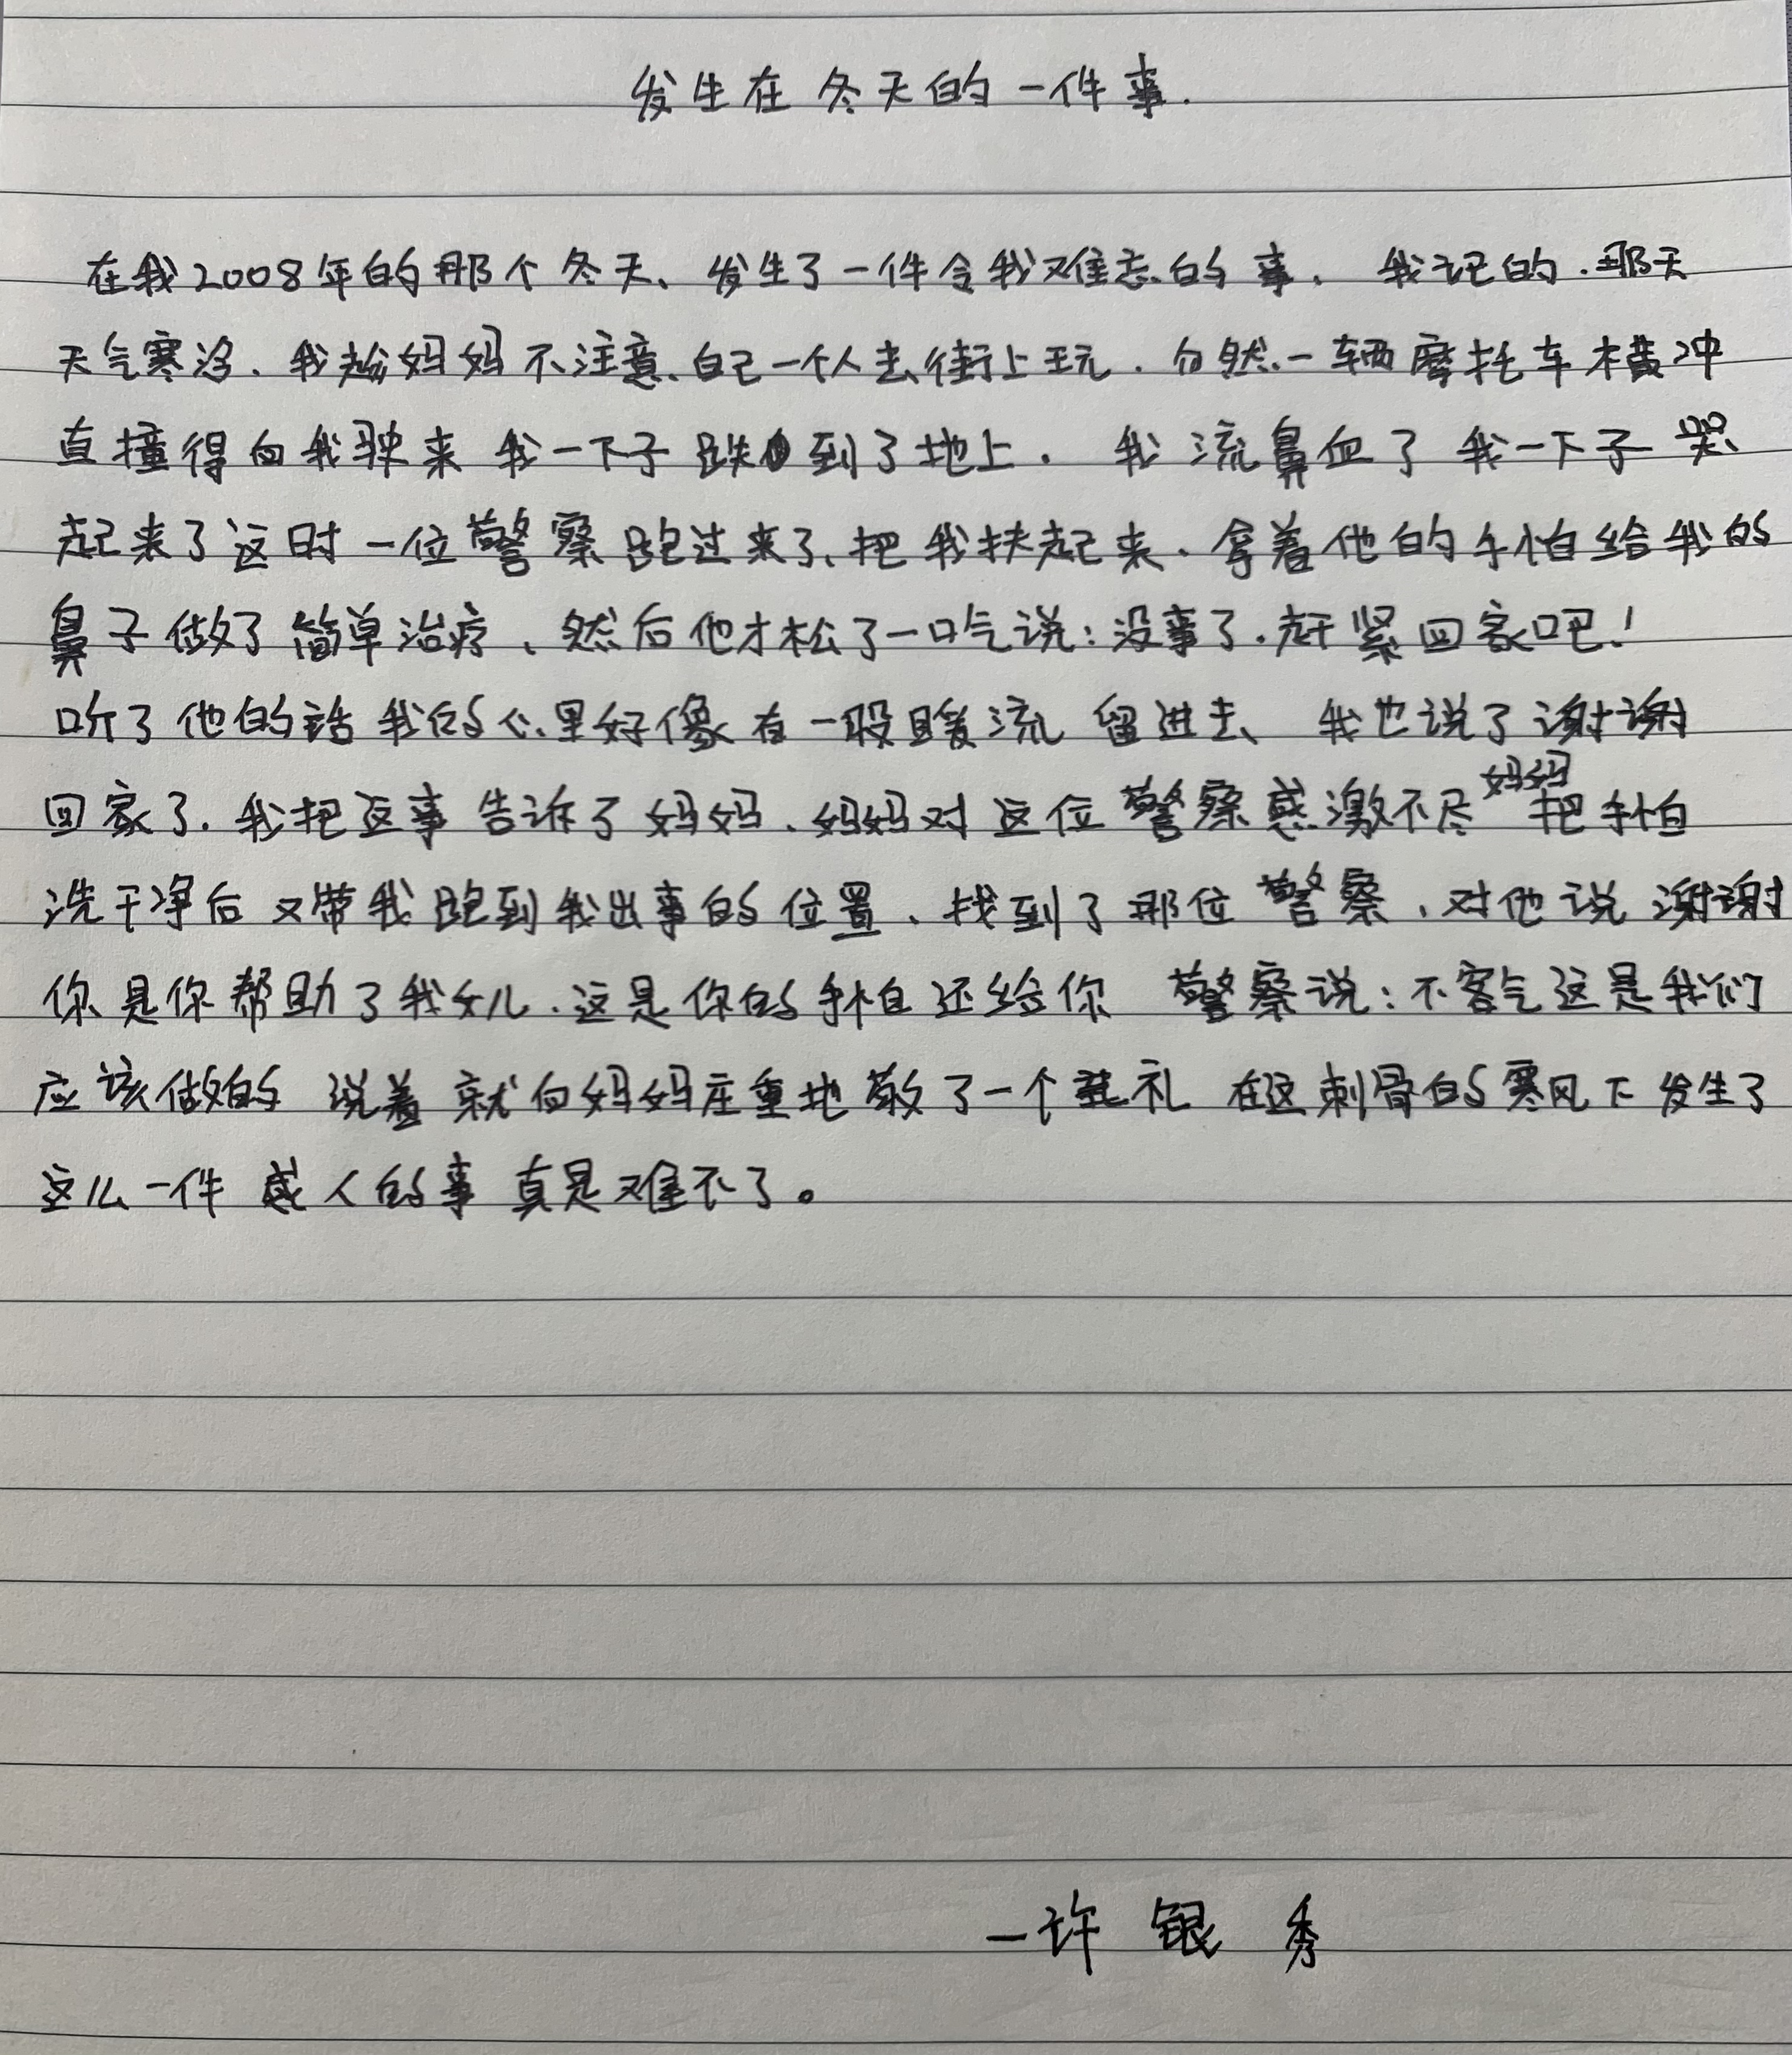 发生在冬天的一件事.
在我2008年的那个冬天、发生了一件令我难忘的事. 我记的.那天
天气寒冷、我趁妈妈不注意、自己一个人去街上玩.勿然、一辆摩托车横冲
直撞得向我驶来 我一下子跌到了地上. 我流鼻血了 我一下子哭
起来了这时一位警察跑过来了、把我扶起来、拿着他的手怕给我的
鼻子做了简单治疗、然后他才松了一口气说:没事了.赶紧回家吧!
听了他的话我的心里好像有一股暖流留进去、我也说了谢谢
回家了.我把这事告诉了妈妈、妈妈对这位警察感激不尽妈妈把手怕
洗干净后又带我跑到我出事的位置、找到了那位警察、对他说谢谢
你是你帮助了我女儿.这是你的手怕还给你 警察说:不客气这是我们
应该做的 说着就向妈妈庄重地敬了一个礼 在这刺骨的寒风下发生了
这么一件感人的事真是难不了。
—许银秀